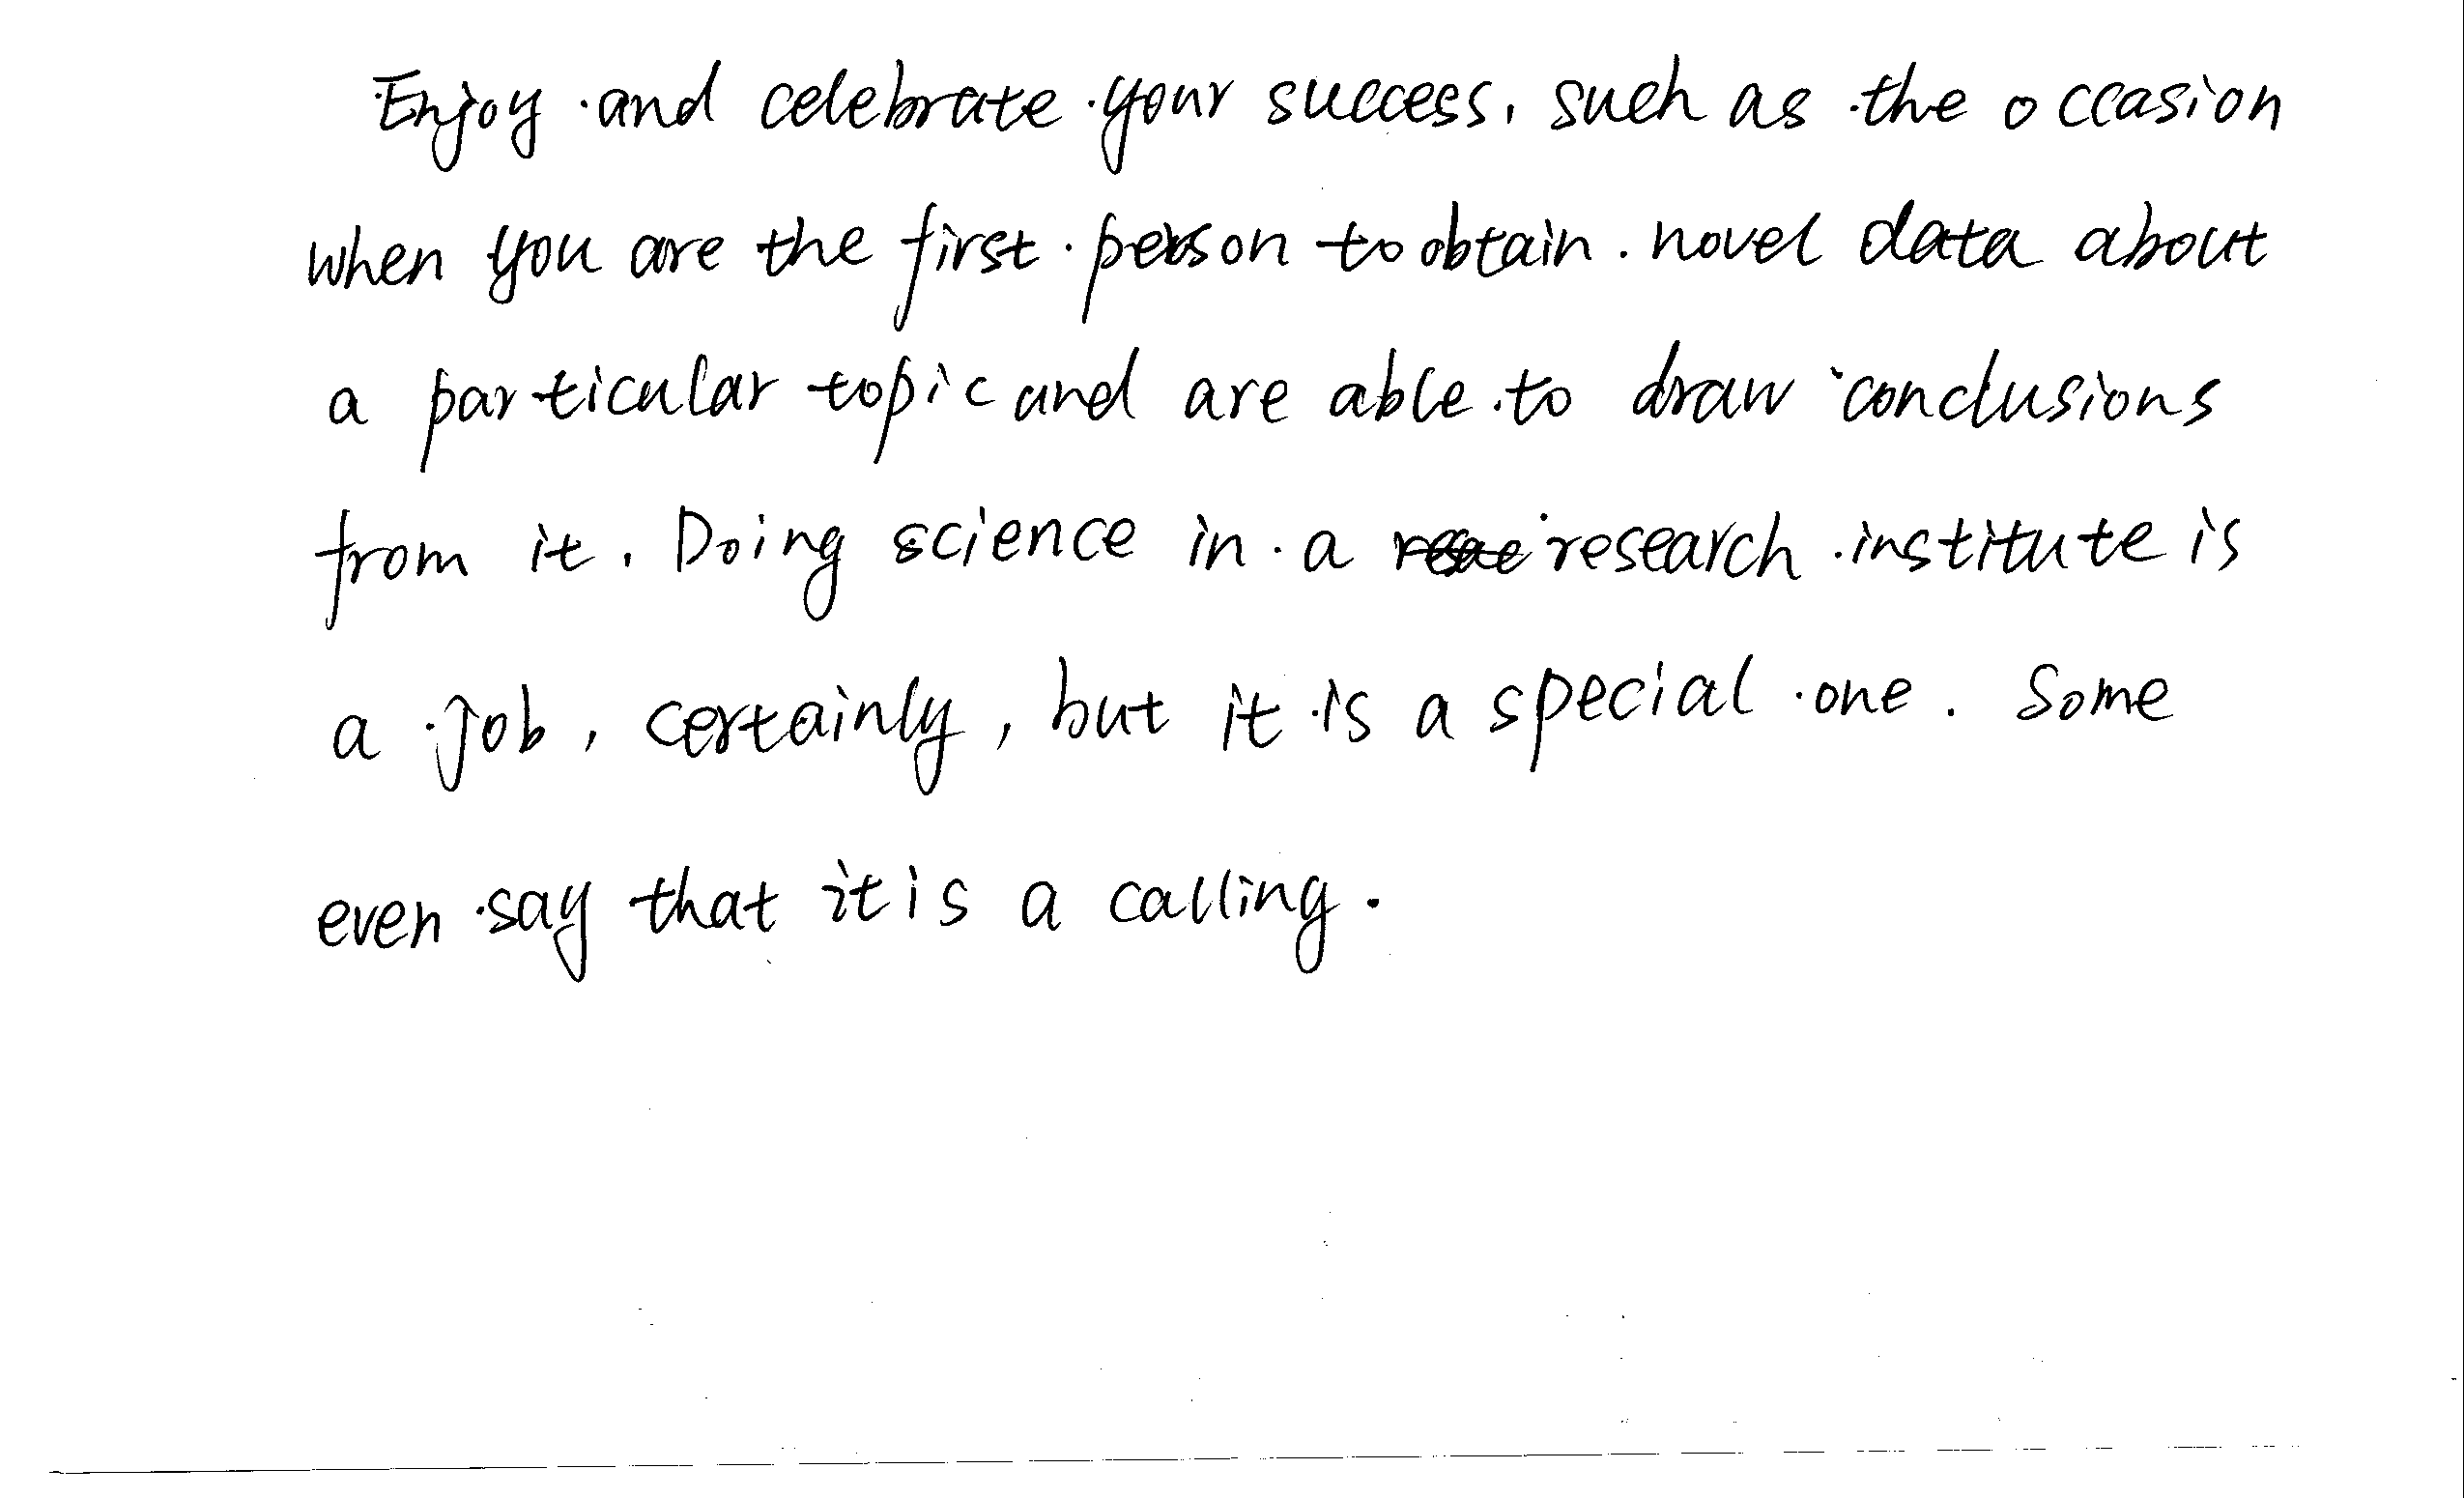 Enjoy and celebrate your success, such as the occasion
when you are the first person to obtain novel data about
a particular topic and are able to draw conclusions
from it. Doing science in a research institute is
a job, certainly, but it is a special one. Some
even say that it is a calling.